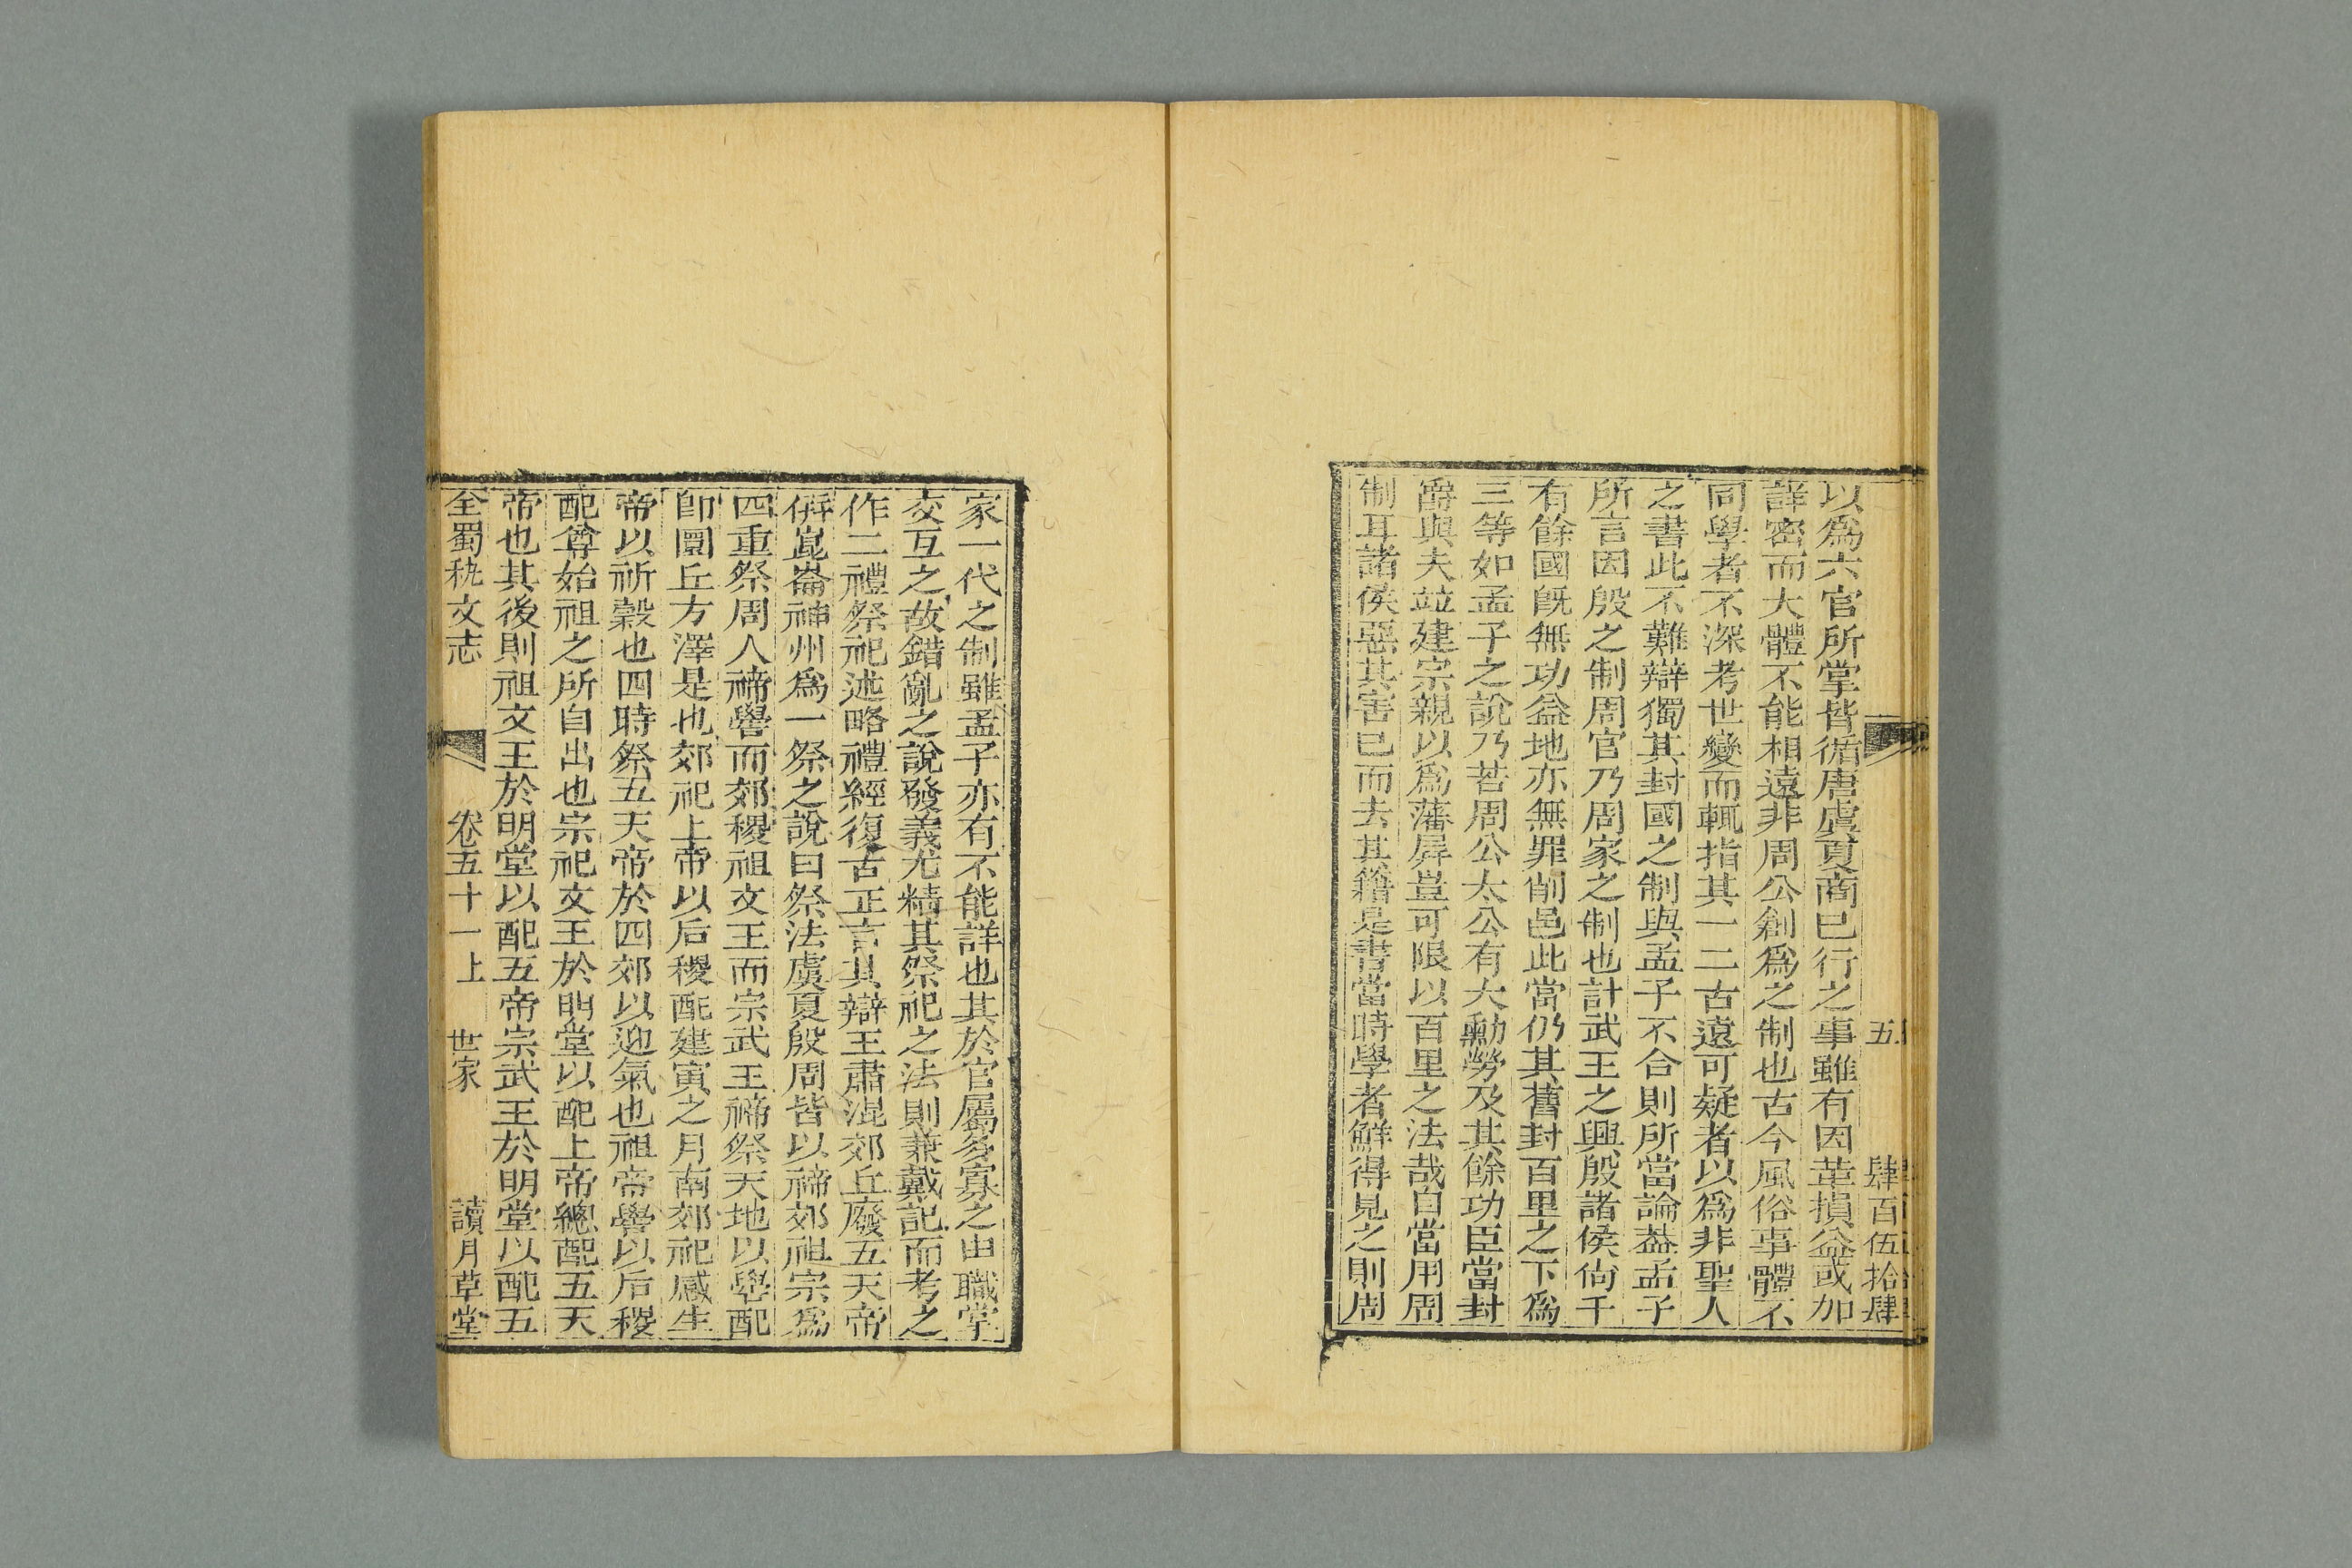 五　肆百伍拾肆
以爲六官所掌皆循唐虞夏商已行之事雖有因革損益或加
詳密而大體不能相遠非周公創爲之制也古今風俗事體不
同學者不深考世變而輒指其一二古遠可疑者以爲非聖人
之書此不難辯獨其封國之制與孟子不合則所當論葢孟子
所言因殷之制周官乃周家之制也計武王之興殷諸侯尙千
有餘國旣無功益地亦無罪削邑此當仍其舊封百里之下爲
三等如孟子之說乃若周公太公有大勳勞及其餘功臣當封
爵與夫竝建宗親以爲藩屏豈可限以百里之法哉自當用周
制耳諸侯惡其害已而去其籍是書當時學者鮮得見之則周
家一代之制雖孟子亦有不能詳也其於官屬多寡之由職掌
交互之故錯亂之說發義尤精其祭祀之法則兼戴記而考之
作二禮祭祀述略禮經復古正言其辯王肅混郊丘廢五天帝
倂崑崙神州爲一祭之說曰祭法虞夏殷周皆以禘郊祖宗爲
四重祭周人禘嚳而郊稷祖文王而宗武王禘祭天地以嚳配
卽圜丘方澤是也郊祀上帝以后稷配建寅之月南郊祀感生
帝以祈穀也四時祭五天帝於四郊以迎氣也祖帝嚳以后稷
配尊始祖之所自出也宗祀文王於明堂以配上帝總配五天
帝也其後則祖文王於明堂以配五帝宗武王於明堂以配五
全蜀秇文志　卷五十一上　世家　讀月草堂